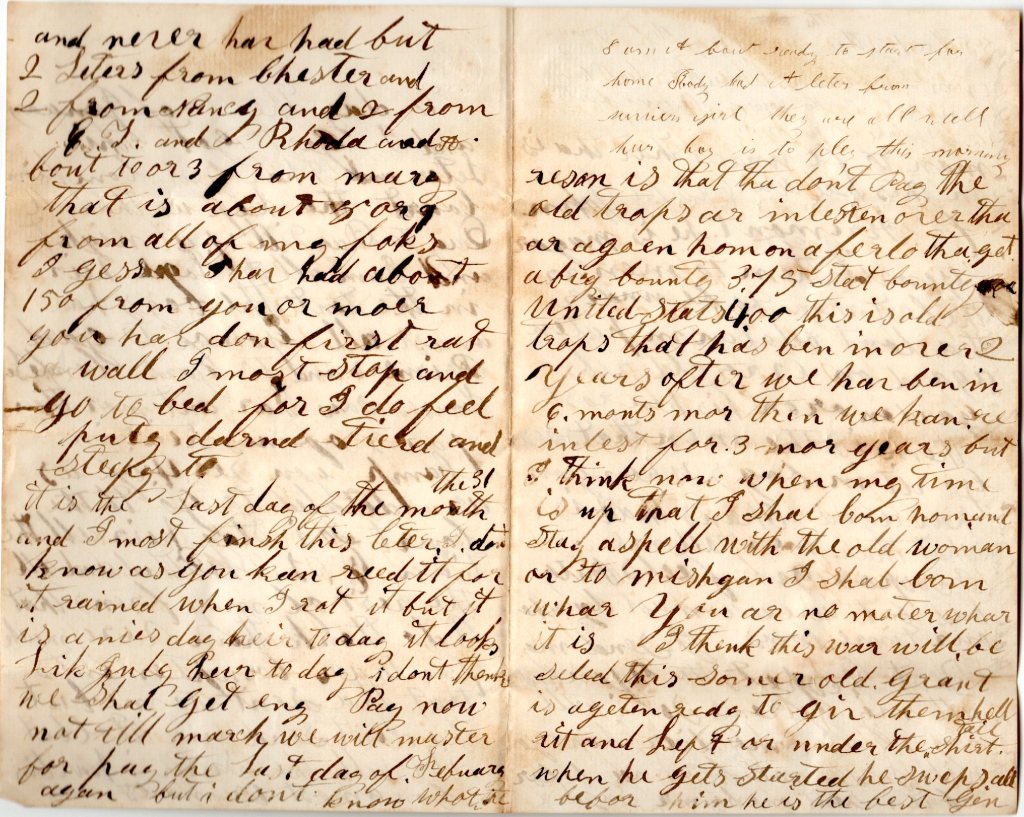 and never har had but
2 Leters from Chester and
2 from Nancy and 2 from
C. T. and 2 Rhoda and
bout 2 or 3 from mary
that is about
from all of my foks
I gess I har had about
150 from you or moer
you har don first rat
wall I most stop and
go to bed for I do feel
puty darnd tierd and
sleepy to
the 31
it is the last day of the month
and I most finsh this leter. I dont
know as you kan reed it for
it rained when I rot it but it
is a nies day heir to day it looks
Lik July heir to day i dont thenk
we shal get eny Pay now
not till march we will muster
for pay the Last day of. Febuary
again but i dont know what, the
I am it bout ready to start for
home had it leter from
girl they are all well
hur boy is to this morning
reson is that tha dont Pay the
old traps ar inlesten orer tha
ar agoen hom on a ferlo tha get
a big bounty 375 Stat bounty
United Stats 400 this is old
traps that has ben in orer 2
Years after we har ben in
6. monts mor then we kan re
inlest for. 3 mor years but
I think now when my time
is up that I shal bom hom and
Stay a spell with the old woman
or to mishgan I shal bom
whar You ar no mater whar
it is I thenk this war will, be
seled this somer old. Grant
is ageten redy to gir them hell
rit and Left or under the, Shirt.
tale
when he gets started he sweps all
befor him he is the best Gen